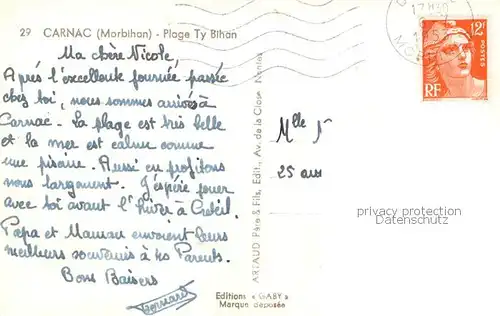 29 CARNAC (Morbihan) - Plage Ty Bihan
Ma chère Nicole,
Après l'excellente journée passée
chez toi, nous sommes arrivés à
Carnac. La plage est très belle
et la mer est calme comme
une piscine. Aussi en profitons
nous largement. J'espère jouer
avec toi avant l'hiver à Créteil.
Papa et Maman envoient leurs
meilleurs souvenirs à tes Parents.
Bons Baisers
Bernard
ARTAUD Père & Fils, Edit., Av. de la Close Nantes
Editions « GABY »
Marque déposée
12F
POSTES
RF
Mlle N
25 ans
privacy protection